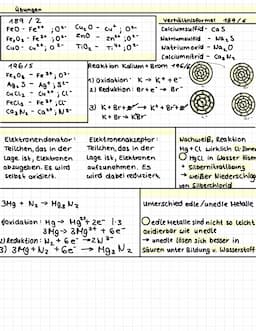 Übungen
189 / 2
FeO - Fe²⁺ ; O²⁻
Fe₂O₃ - Fe³⁺ ; O²⁻
CuO - Cu²⁺ ; O²⁻
Cu₂O - Cu⁺ ; O²⁻
ZnO - Zn²⁺ ; O²⁻
TiO₂ - Ti⁴⁺ ; O²⁻
Verhältnisformel 189/6
Calciumsulfid - CaS
Natriumsulfid - Na₂S
Natriumoxid - Na₂O
Calciumnitrid - Ca₃N₂
196/5
Fe₂O₃ - Fe³⁺ ; O²⁻
Ag₂S - Ag⁺ ; S²⁻
CuCl₂ - Cu²⁺ ; Cl⁻
FeCl₃ - Fe³⁺ ; Cl⁻
Ca₃N₂ - Ca²⁺ ; N³⁻
Reaktion Kalium + Brom
1) Oxidation: K → K⁺ + e⁻
2) Reduktion: Br + e⁻ → Br⁻
3) K + Br + e⁻ → K⁺ + Br⁻ + e⁻
K + Br → KBr
Elektronendonator:
Teilchen, das in der
Lage ist, Elektronen
abzugeben. Es wird
selbst oxidiert.
Elektronenakzeptor:
Teilchen, das in der
Lage ist, Elektronen
aufzunehmen. Es
wird dabei reduziert.
Nachweis, Reaktion
HgCl in Wasser lösen
+ Silbernitratlösung
→ weißer Niederschlag
von Silberchlorid
3Mg + N₂ → Mg₃N₂
Oxidation: Mg → Mg²⁺ + 2e⁻ |·3
3Mg → 3Mg²⁺ + 6e⁻
2) Reduktion: N₂ + 6e⁻ → 2N³⁻
3) 3Mg + N₂ + 6e⁻ → Mg₃N₂
Unterschied edle/unedle Metalle
edle Metalle sind nicht so leicht
oxidierbar wie unedle
→ unedle lösen sich besser in
Säuren unter Bildung v. Wasserstoff